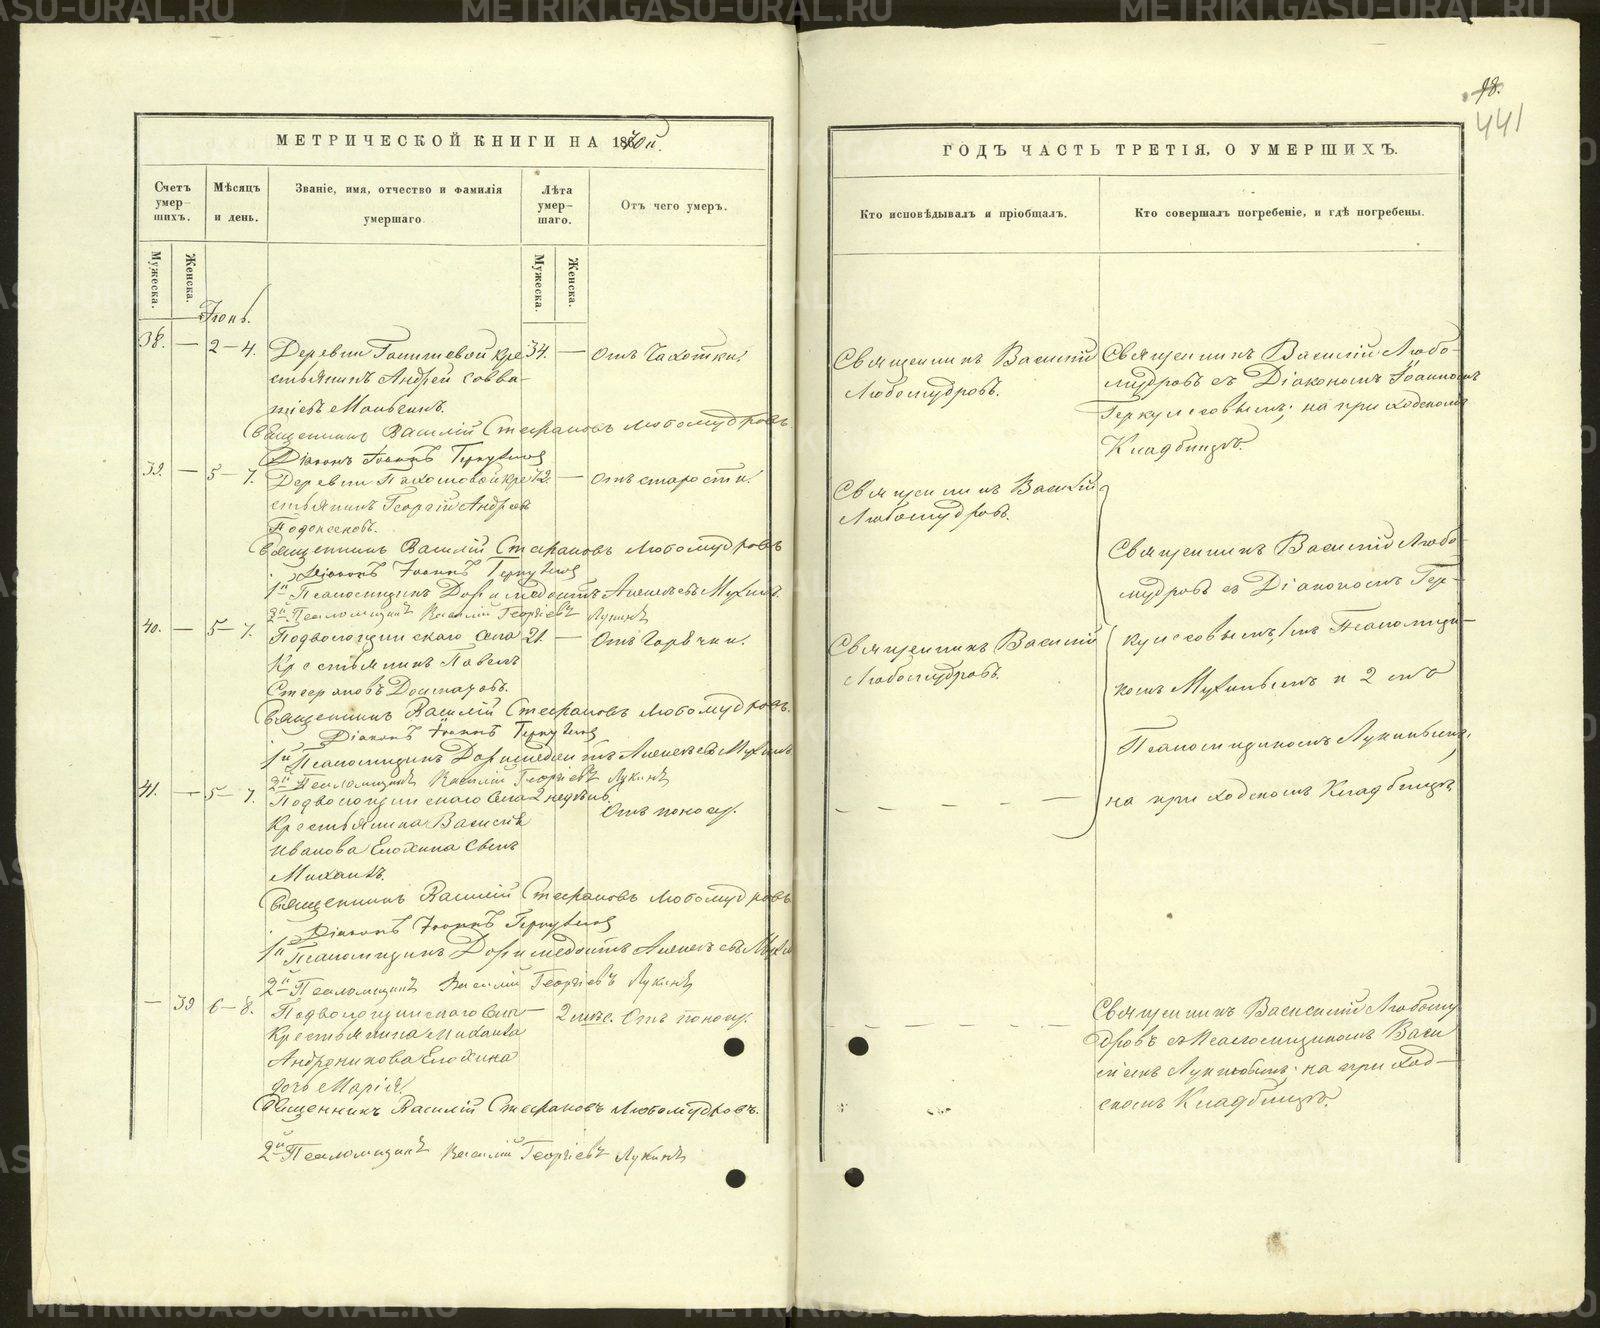 98.
441
МЕТРИЧЕСКОЙ КНИГИ НА 1870й.
ГОДЪ ЧАСТЬ ТРЕТІЯ, О УМЕРШИХЪ.
Счетъ умер-шихъ.
Мѣсяцъ и день.
Званіе, имя, отчество и фамилія умершаго
Лѣта умер-шаго.
Отъ чего умеръ.
Кто исповѣдывалъ и пріобщалъ.
Кто совершалъ погребеніе, и гдѣ погребены.
Мужеска.
Женска.
Мужеска.
Женска.
Іюнь.
38. — 2—4. Деревни кре- 34. — Отъ Чахотки.
стьянинъ Андрей Савва-
тіевъ
Священникъ Василій Стефановъ Любомудровъ
Діаконъ Іоаннъ Геркулесов
Священникъ Василій
Любомудровъ.
Священникъ Василій Любо-
мудровъ съ Діакономъ Іоанномъ
Геркулесовымъ; на приходскомъ
Кладбищѣ.
39. — 5—7. Деревни Пахомовой кре- 72. — Отъ старости.
стьянинъ Георгій Андреевъ
Подоксеновъ.
Священникъ Василій Стефановъ Любомудровъ
Діаконъ Іоаннъ Геркулесов
1й Псаломщикъ Доримедонтъ Алексѣевъ Мухинъ.
2й Псаломщикъ Василій Георгіевъ Лукинъ
Священникъ Василій
Любомудровъ.
40. — 5—7. Подволошинскаго Села 21. — Отъ Горячки.
Крестьянинъ Павелъ
Стефановъ
Священникъ Василій Стефановъ Любомудровъ.
Діаконъ Іоаннъ Геркулесов
1й Псаломщикъ Доримедонтъ Алексѣевъ Мухинъ
2й Псаломщикъ Василій Георгіевъ Лукинъ
Священникъ Василій
Любомудровъ.
41. — 5—7. Подволошинскаго Села 2 недѣль. Отъ поносу.
Крестьянина Василія
Иванова Елохина Сынъ
Михаилъ.
Священникъ Василій Стефановъ Любомудровъ
Діаконъ Іоаннъ Геркулесов
1й Псаломщикъ Доримедонтъ Алексѣевъ Мухин
2й Псаломщикъ Василій Георгіевъ Лукинъ
Священникъ Василій Любо-
мудровъ съ Діакономъ Гер-
кулесовымъ, 1мъ Псаломщи-
комъ Мухинымъ и 2мъ
Псаломщикомъ Лукинымъ,
на приходскомъ Кладбищѣ
— 39 6—8. Подволошинскаго Села — 2 мѣс. Отъ поносу.
Крестьянина Михаила
Андроникова Елохина
дочь Марія
Священникъ Василій Стефановъ Любомудровъ.
2й Псаломщикъ Василій Георгіевъ Лукинъ
Священникъ Василій Любому-
дровъ съ Псаломщикомъ Васи-
ліемъ Лукинымъ; на приход-
скомъ Кладбищѣ.
METRIKI.GASO-URAL.RU